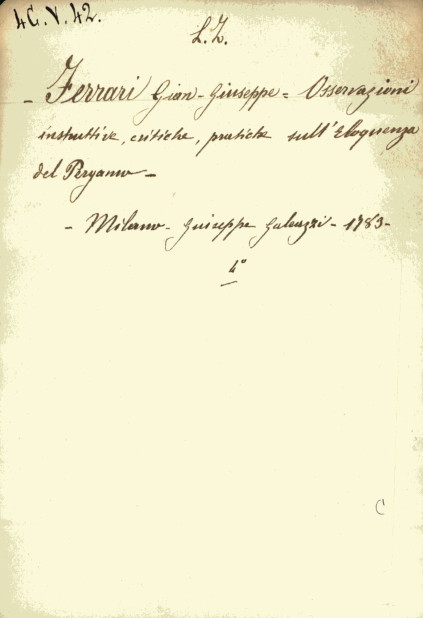 4G.V.42.
L.Z.
- Ferrari Gian-Giuseppe = Osservazioni
instruttive, critiche, pratiche sull'Eloquenza
del Pergamo -
- Milano - Giuseppe Galeazzi - 1783 -
4°
C